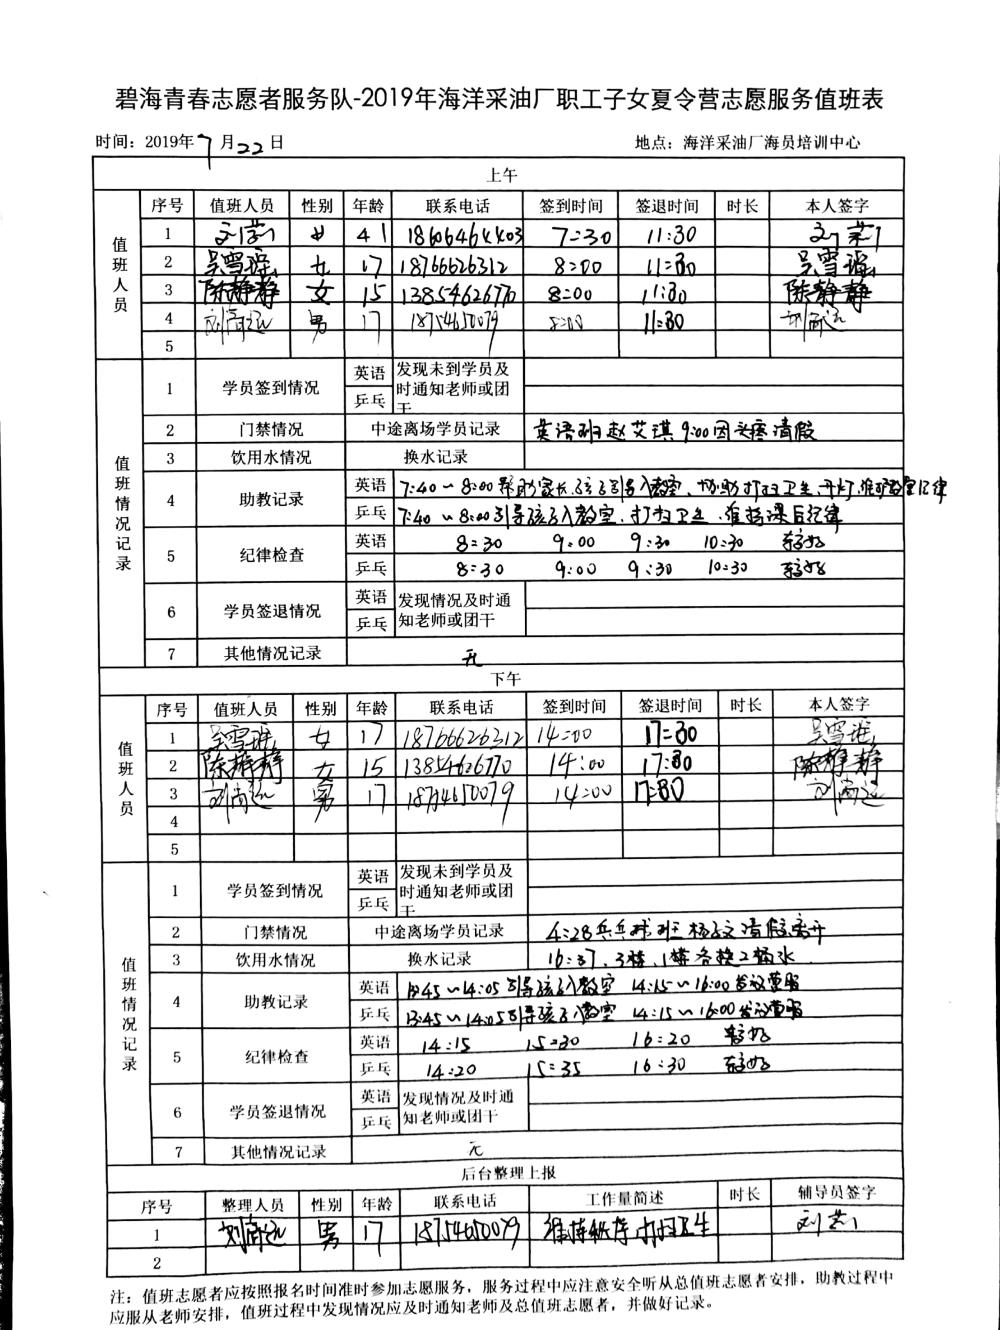 碧海青春志愿者服务队-2019年海洋采油厂职工子女夏令营志愿服务值班表
时间：2019年7月22日 地点：海洋采油厂海员培训中心
上午
值班人员
序号 值班人员 性别 年龄 联系电话 签到时间 签退时间 时长 本人签字
1 刘莉 女 41 7:30 11:30 刘莉
2 吴雪瑶 女 17 18766626312 8:00 11:30 吴雪瑶
3 陈静静 女 15 13854626770 8:00 11:30 陈静静
4 刘尚远 男 17 18754650079 8:00 11:30 刘尚远
5
值班情况记录
1 学员签到情况 英语 乒乓 发现未到学员及时通知老师或团干
2 门禁情况 中途离场学员记录 英语班赵艾琪9:00因头疼请假
3 饮用水情况 换水记录
4 助教记录 英语 7:40~8:00帮助家长,孩子引导入教室,协助打扫卫生,开灯,维护教室纪律
乒乓 7:40~8:00引导孩子入教室,打扫卫生,维持课后纪律
5 纪律检查 英语 8:30 9:00 9:30 10:30 较好
乒乓 8:30 9:00 9:30 10:30 较好
6 学员签退情况 英语 乒乓 发现情况及时通知老师或团干
7 其他情况记录 无
下午
值班人员
序号 值班人员 性别 年龄 联系电话 签到时间 签退时间 时长 本人签字
1 吴雪瑶 女 17 18766626312 14:00 17:30 吴雪瑶
2 陈静静 女 15 13854626770 14:00 17:30 陈静静
3 刘尚远 男 17 18754650079 14:00 17:30 刘尚远
4
5
值班情况记录
1 学员签到情况 英语 乒乓 发现未到学员及时通知老师或团干
2 门禁情况 中途离场学员记录 4:28乒乓球班杨文请假离开
3 饮用水情况 换水记录 16:37,3楼,1楼各换2桶水
4 助教记录 英语 13:45~14:05引导孩子入教室 14:15~16:00发放营服
乒乓 13:45~14:05引导孩子入教室 14:15~16:00发放营服
5 纪律检查 英语 14:15 15:30 16:20 较好
乒乓 14:20 15:35 16:30 较好
6 学员签退情况 英语 乒乓 发现情况及时通知老师或团干
7 其他情况记录 无
后台整理上报
序号 整理人员 性别 年龄 联系电话 工作量简述 时长 辅导员签字
1 刘尚远 男 17 18754650079 维持秩序 打扫卫生 刘莉
2
注：值班志愿者应按照报名时间准时参加志愿服务，服务过程中应注意安全听从总值班志愿者安排，助教过程中
应服从老师安排，值班过程中发现情况应及时通知老师及总值班志愿者，并做好记录。